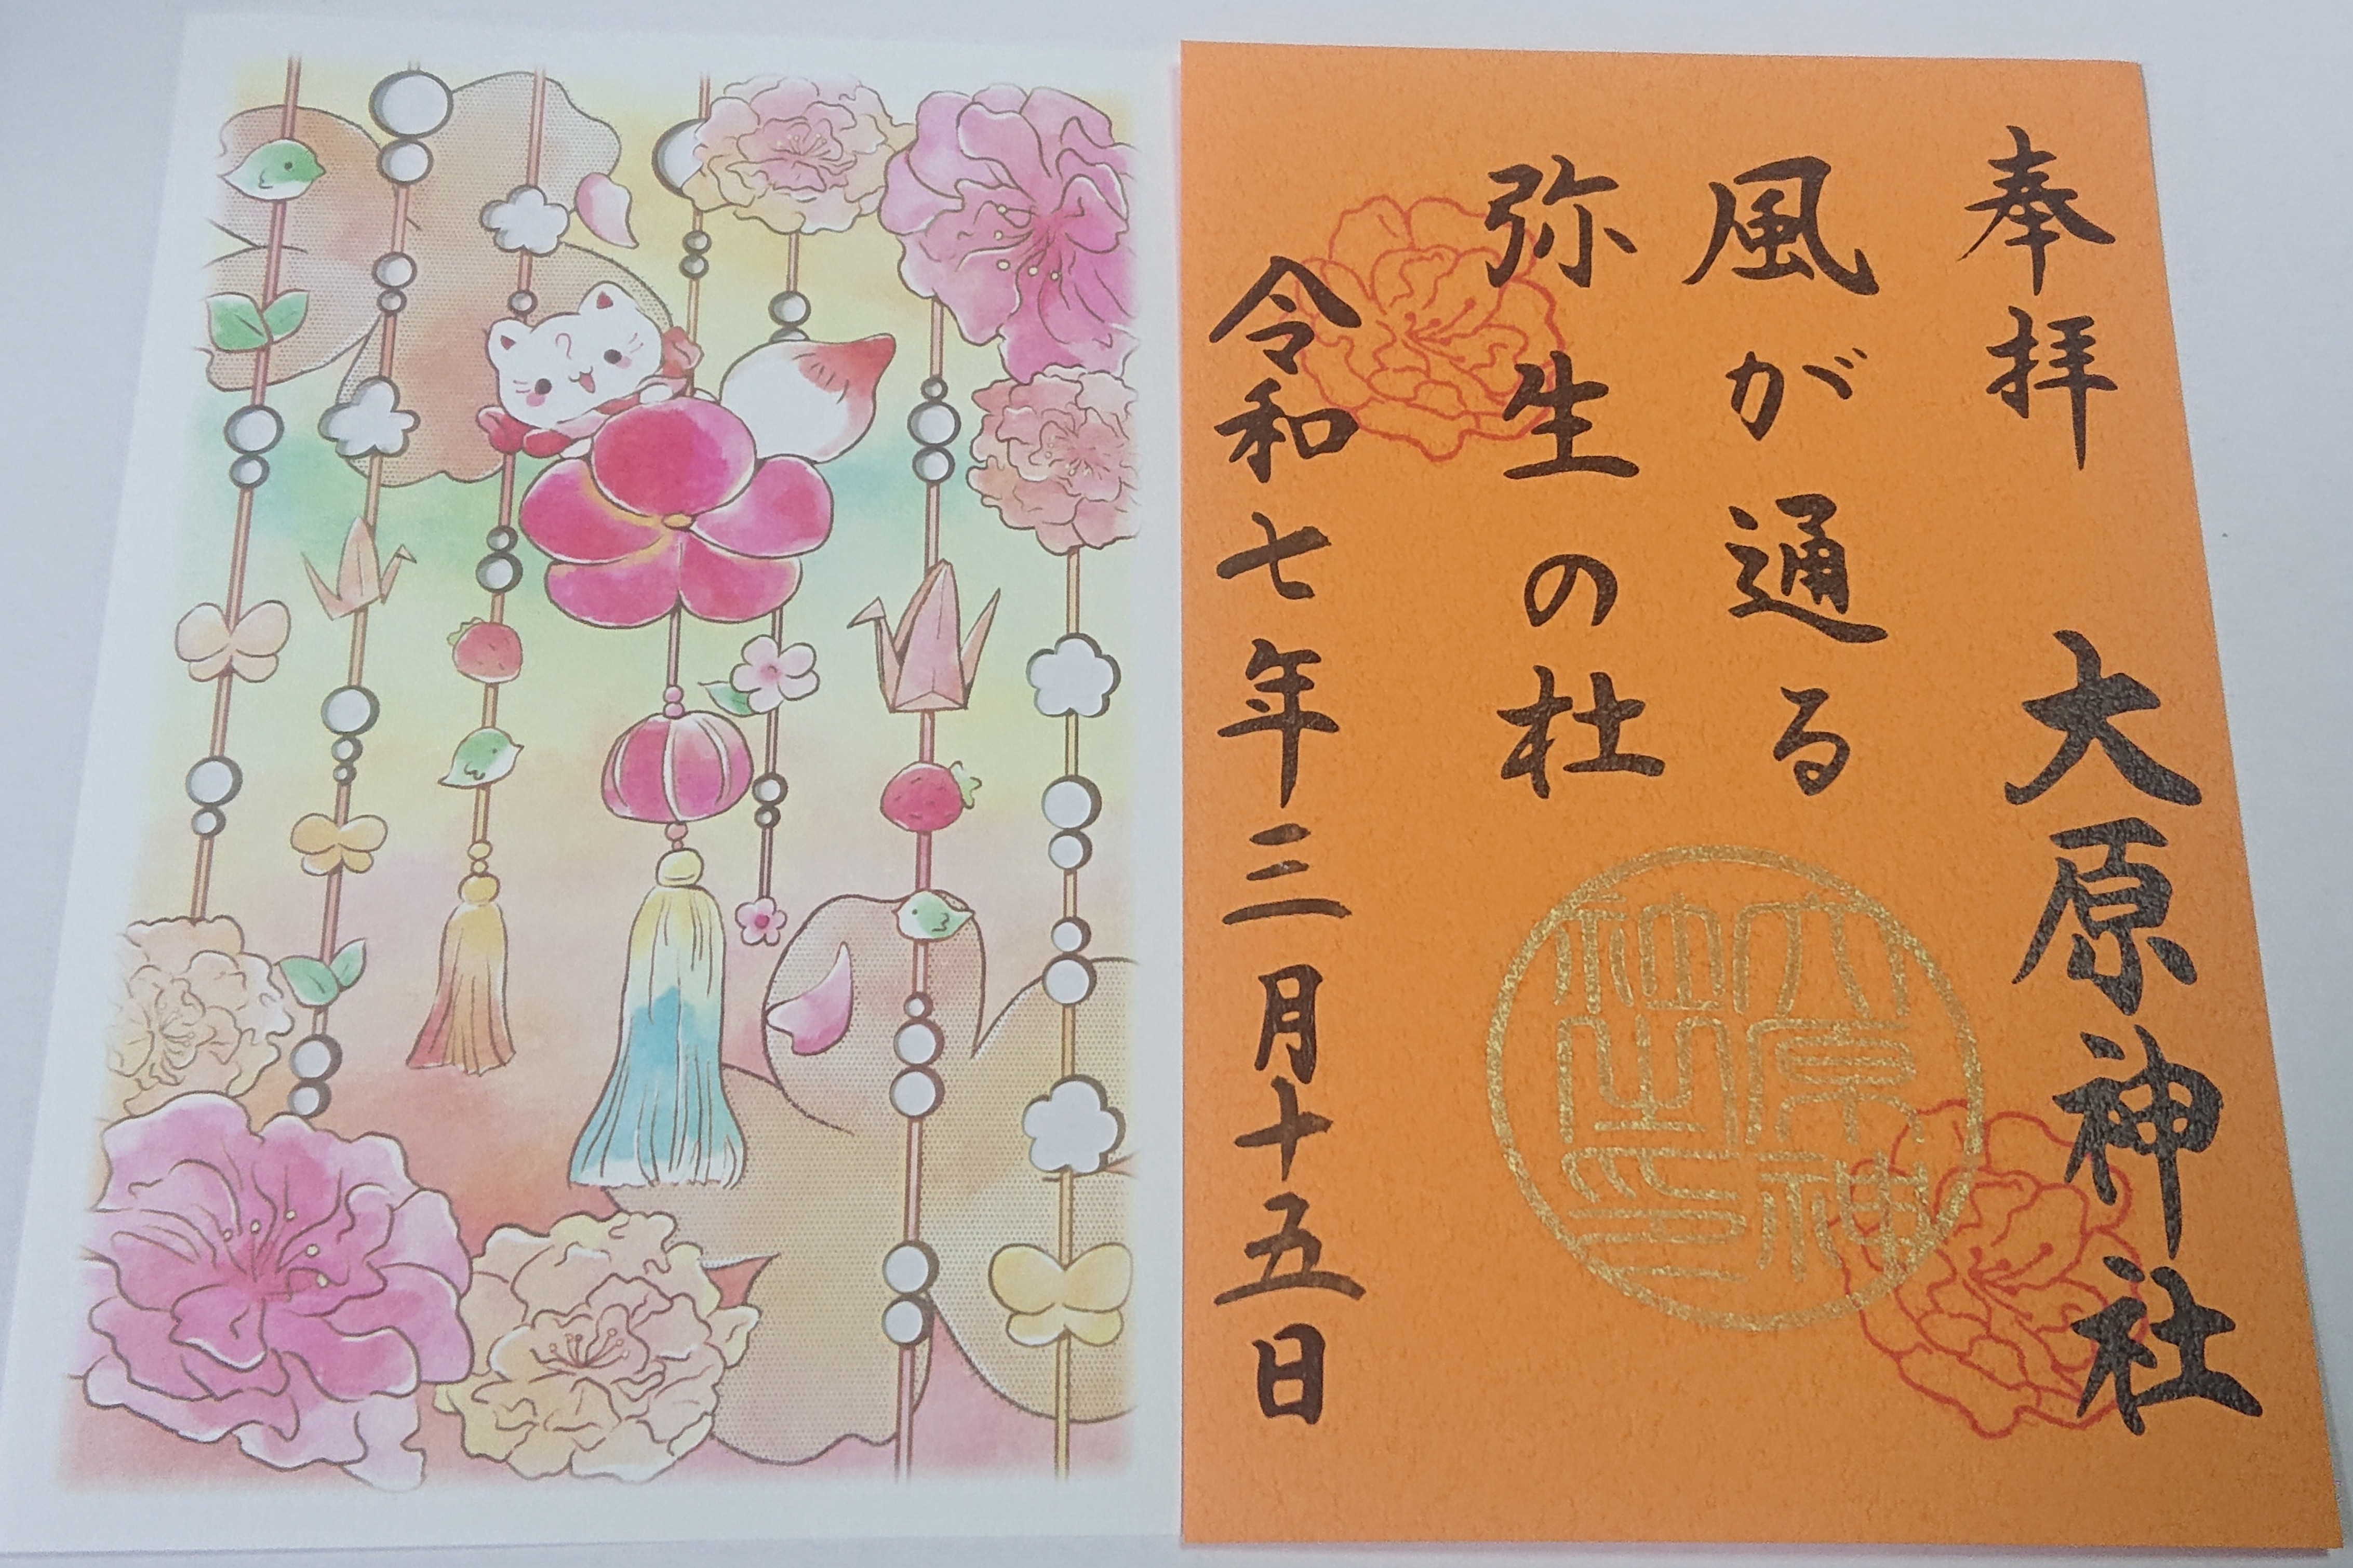 奉拝 大原神社
風が通る
弥生の杜
令和七年三月十五日
大原神
社之印